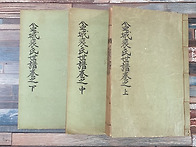 金城裵氏世譜卷之上
金城裵氏世譜卷之中
金城裵氏世譜卷之下